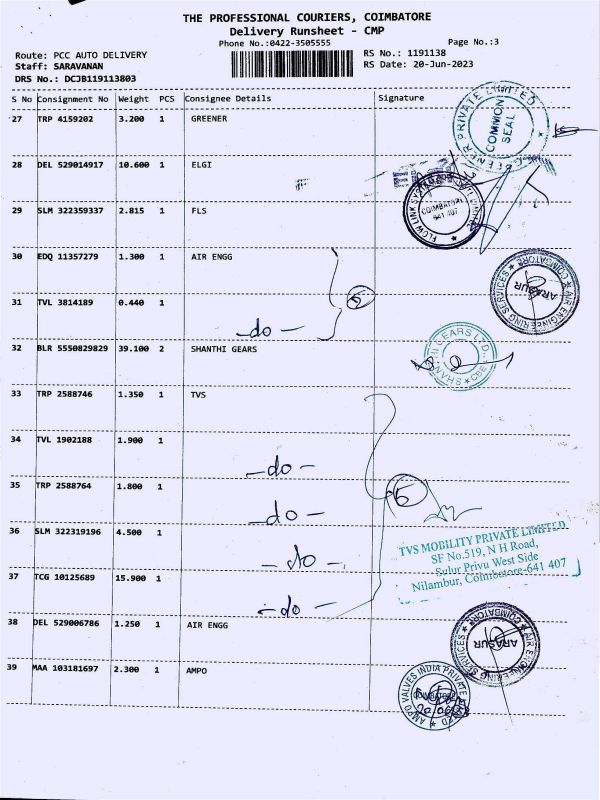 THE PROFESSIONAL COURIERS, COIMBATORE
Delivery Runsheet - CMP
Phone No.:0422-3505555
Page No.:3
Route: PCC AUTO DELIVERY
RS No.: 1191138
Staff: SARAVANAN
RS Date: 20-Jun-2023
DRS No.: DCJB119113803
S No Consignment No Weight PCS Consignee Details Signature
27 TRP 4159202 3.200 1 GREENER
COMMON SEAL
28 DEL 529014917 10.600 1 ELGI
29 SLM 322359337 2.815 1 FLS
COIMBATORE
641 407
30 EDQ 11357279 1.300 1 AIR ENGG
AIR ENGINEERING SERVICES ★ COIMBATORE ★
ARASUR
31 TVL 3814189 0.440 1
-do-
32 BLR 5550829829 39.100 2 SHANTHI GEARS
SHANTHI GEARS LTD., CBE ★
33 TRP 2588746 1.350 1 TVS
34 TVL 1902188 1.900 1
-do-
35 TRP 2588764 1.800 1
-do-
36 SLM 322319196 4.500 1
-do-
TVS MOBILITY PRIVATE LIMITED
SF No.519, N H Road,
Sulur Privu West Side
Nilambur, Coimbatore-641 407
37 TCG 10125689 15.900 1
-do-
38 DEL 529006786 1.250 1 AIR ENGG
AIR ENGINEERING SERVICES ★ COIMBATORE ★
ARASUR
39 MAA 103181697 2.300 1 AMPO
AMPO VALVES INDIA PRIVATE